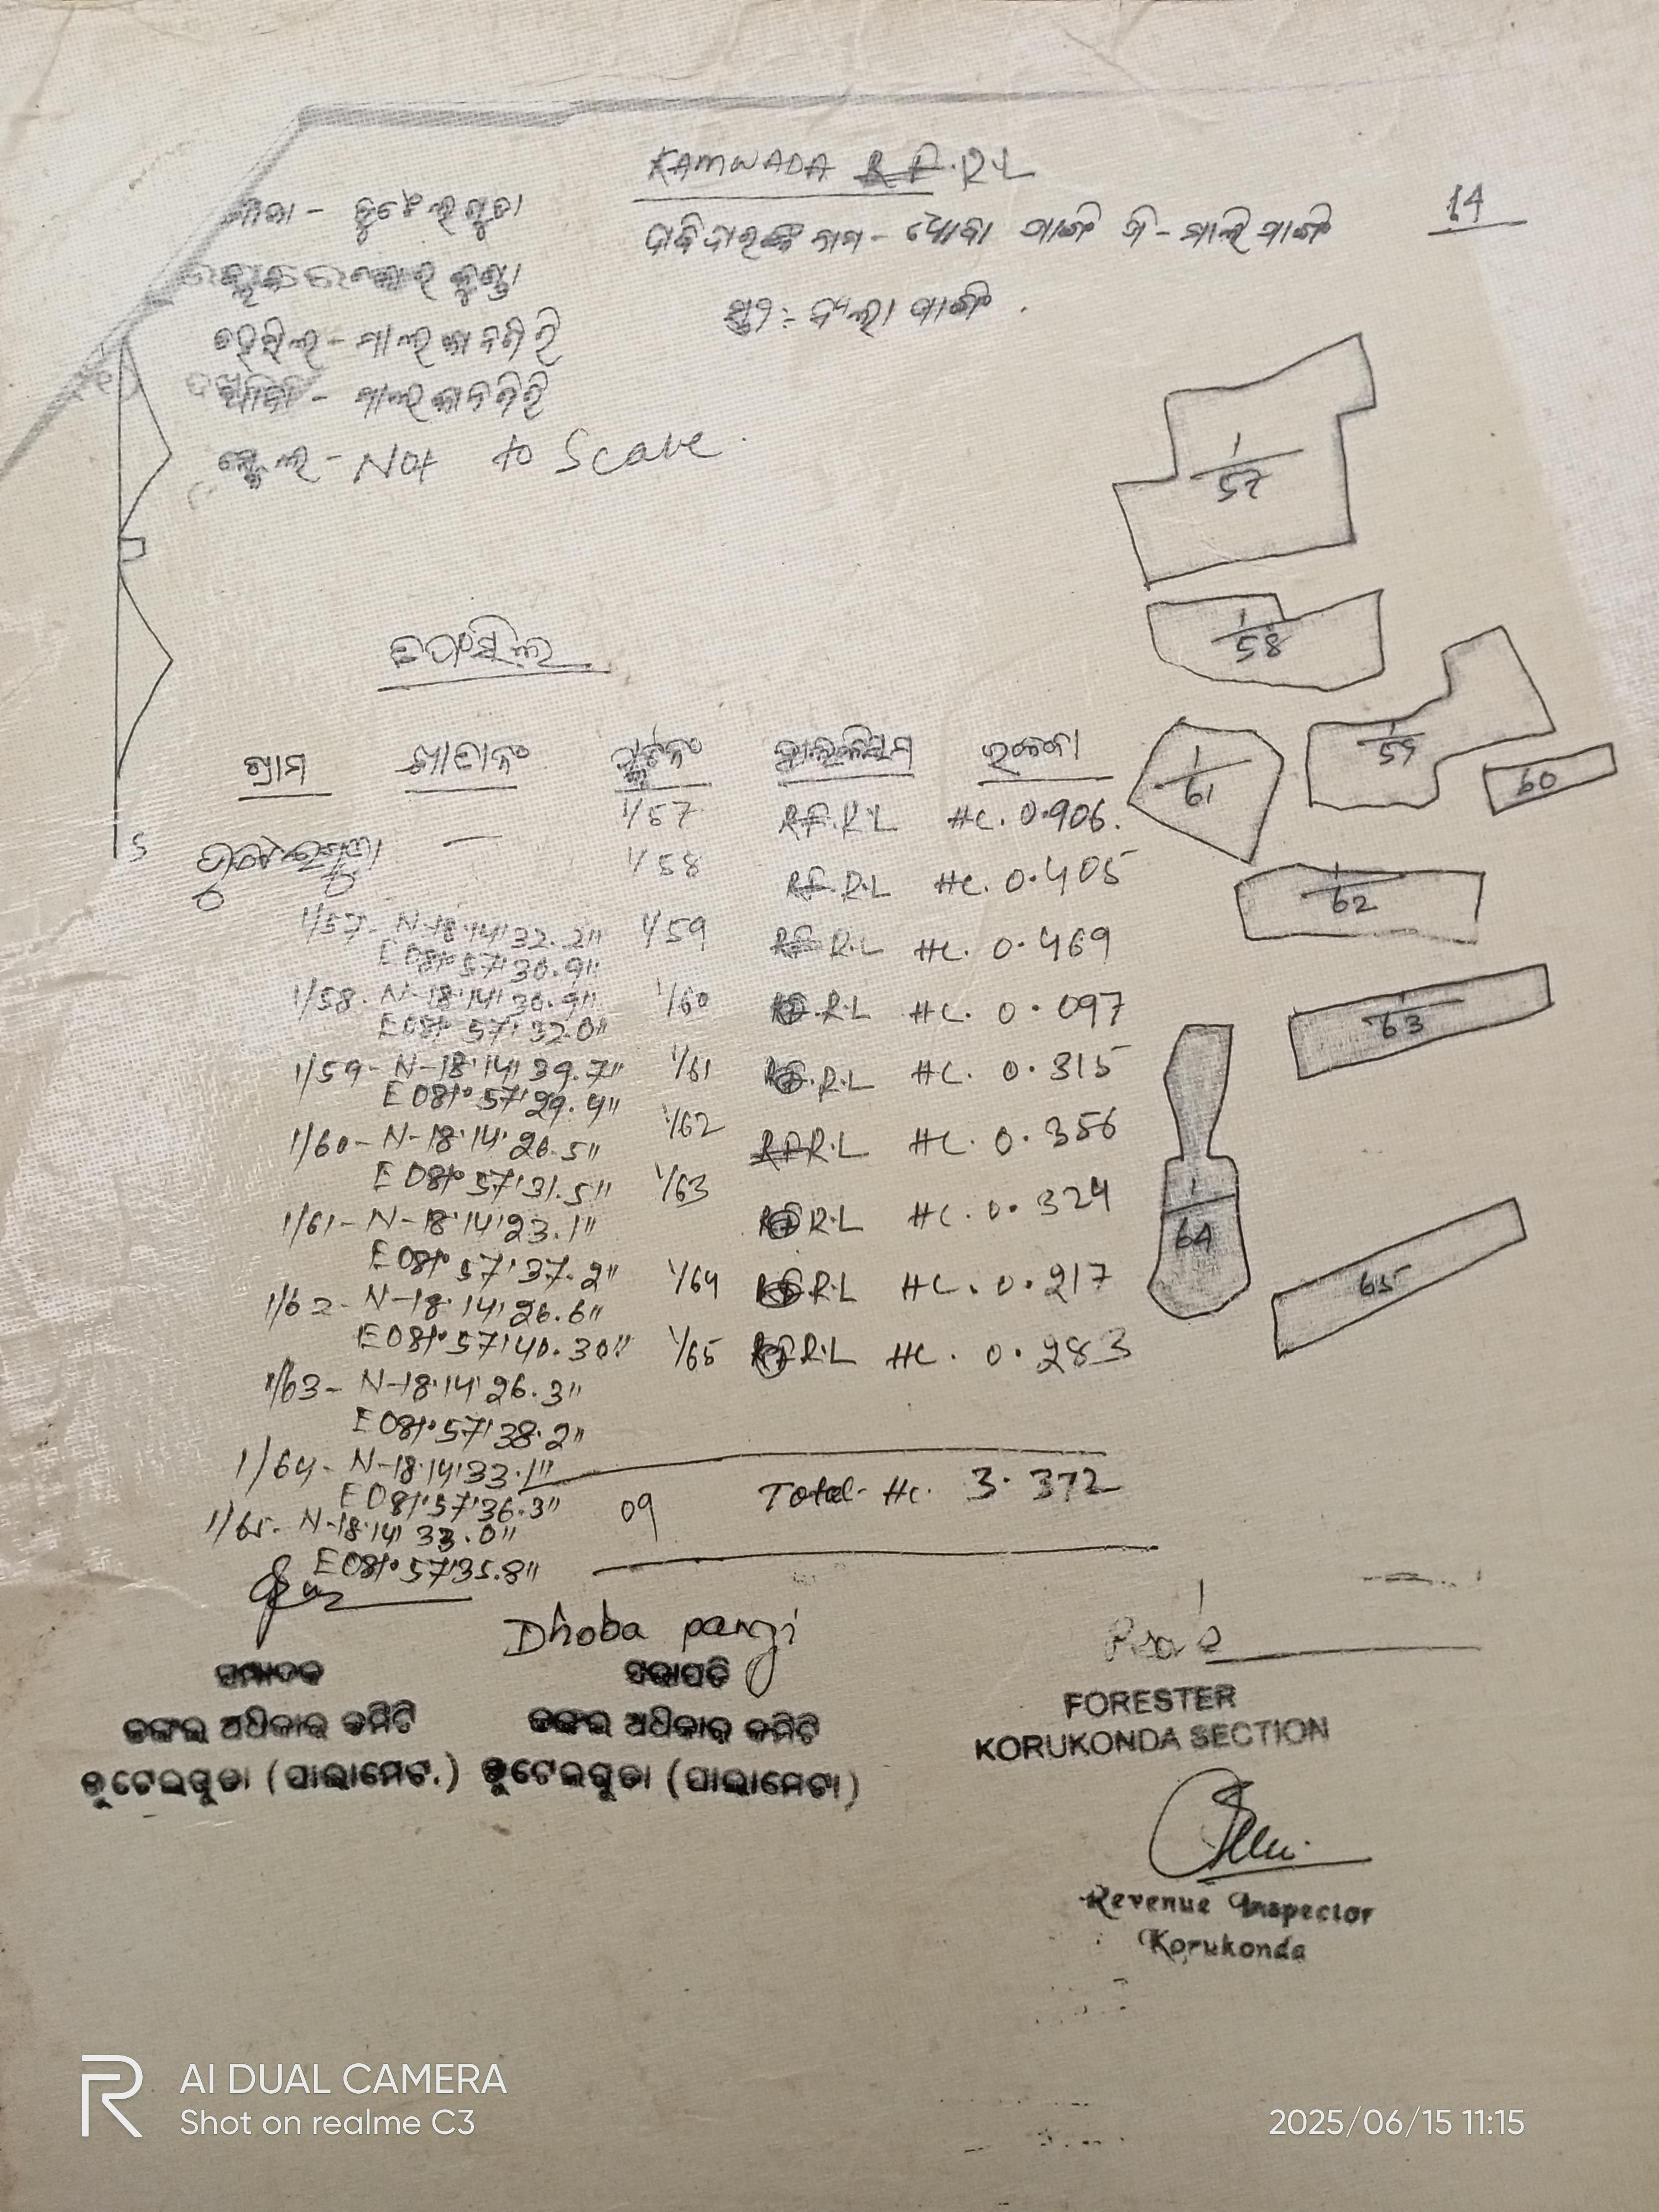 KAMWADA R.F. R.L
14
ଦାବିଦାରଙ୍କ ନାମ - ଧୋବା ପାଙ୍ଗି ପି - ମାଲି ପାଙ୍ଗି
ତହସିଲ - ମାଲକାନଗିରି
ମାଲକାନଗିରି
ସ୍କେଲ - Not to Scale
1/57
1/58
1/59
60
1/61
1/62
1/63
1/64
65
S
ତପସିଲ
ଗ୍ରାମ ଖାତା ନଂ ପ୍ଲଟ ନଂ କିସମ ରକବା
1/57 RF. R.L HC. 0.906.
1/58 RF. R.L HC. 0.405
1/59 RF R.L HC. 0.469
1/60 RF. R.L HC. 0.097
1/61 RF. R.L HC. 0.315
1/62 RF R.L HC. 0.356
1/63 RF R.L HC. 0.324
1/64 RF R.L HC. 0.217
1/65 RF R.L HC. 0.283
1/57- N-18°14'32.2"
E 081° 57' 30.9"
1/58- N-18°14'30.9"
E 081° 57' 32.0"
1/59- N-18°14'39.7"
E 081° 57' 29.4"
1/60- N-18°14'26.5"
E 081° 57' 31.5"
1/61- N-18°14'23.1"
E 081° 57' 37.2"
1/62- N-18°14'26.6"
E 081° 57' 40.30"
1/63- N-18°14'26.3"
E 081° 57' 38.2"
1/64- N-18°14'33.1"
E 081° 57' 36.3"
1/65- N-18°14' 33.0"
E 081° 57' 35.8"
09 Total- Hc. 3.372
Dhoba pangi
ସମ୍ପାଦକ
ଜଙ୍ଗଲ ଅଧିକାର କମିଟି
ଭୁଟେଇଗୁଡା (ପାଲାମେଟା)
ସଭାପତି
ଜଙ୍ଗଲ ଅଧିକାର କମିଟି
ଭୁଟେଇଗୁଡା (ପାଲାମେଟା)
FORESTER
KORUKONDA SECTION
Revenue Inspector
Korukonda
AI DUAL CAMERA
Shot on realme C3
2025/06/15 11:15